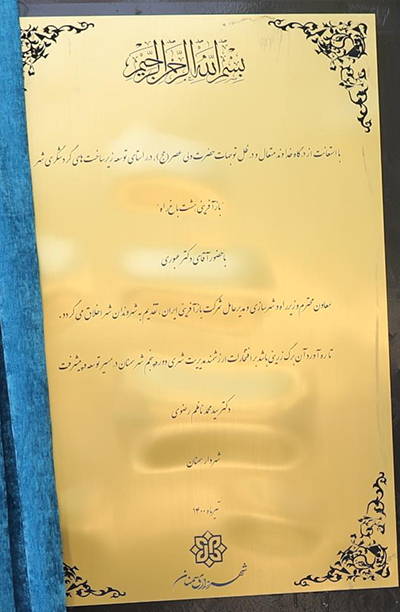 بسم الله الرحمن الرحیم
با استعانت از درگاه خداوند متعال و در ظل توجهات حضرت ولی عصر (عج)، در راستای توسعه زیرساخت های گردشگری شهر
"بازآفرینی هشت باغ راه"
با حضور آقای دکتر عبوری
معاون محترم وزیر راه و شهرسازی و مدیرعامل شرکت بازآفرینی ایران، تقدیم به شهروندان شهر اخلاق می گردد.
تا ره آورد آن برگ زرینی باشد بر افتخارات ارزشمند مدیریت شهری دوره پنجم شهر سمنان در مسیر توسعه و پیشرفت
دکتر سید محمد ناظم رضوی
شهردار سمنان
تیرماه ۱۴۰۰
شهرداری سمنان